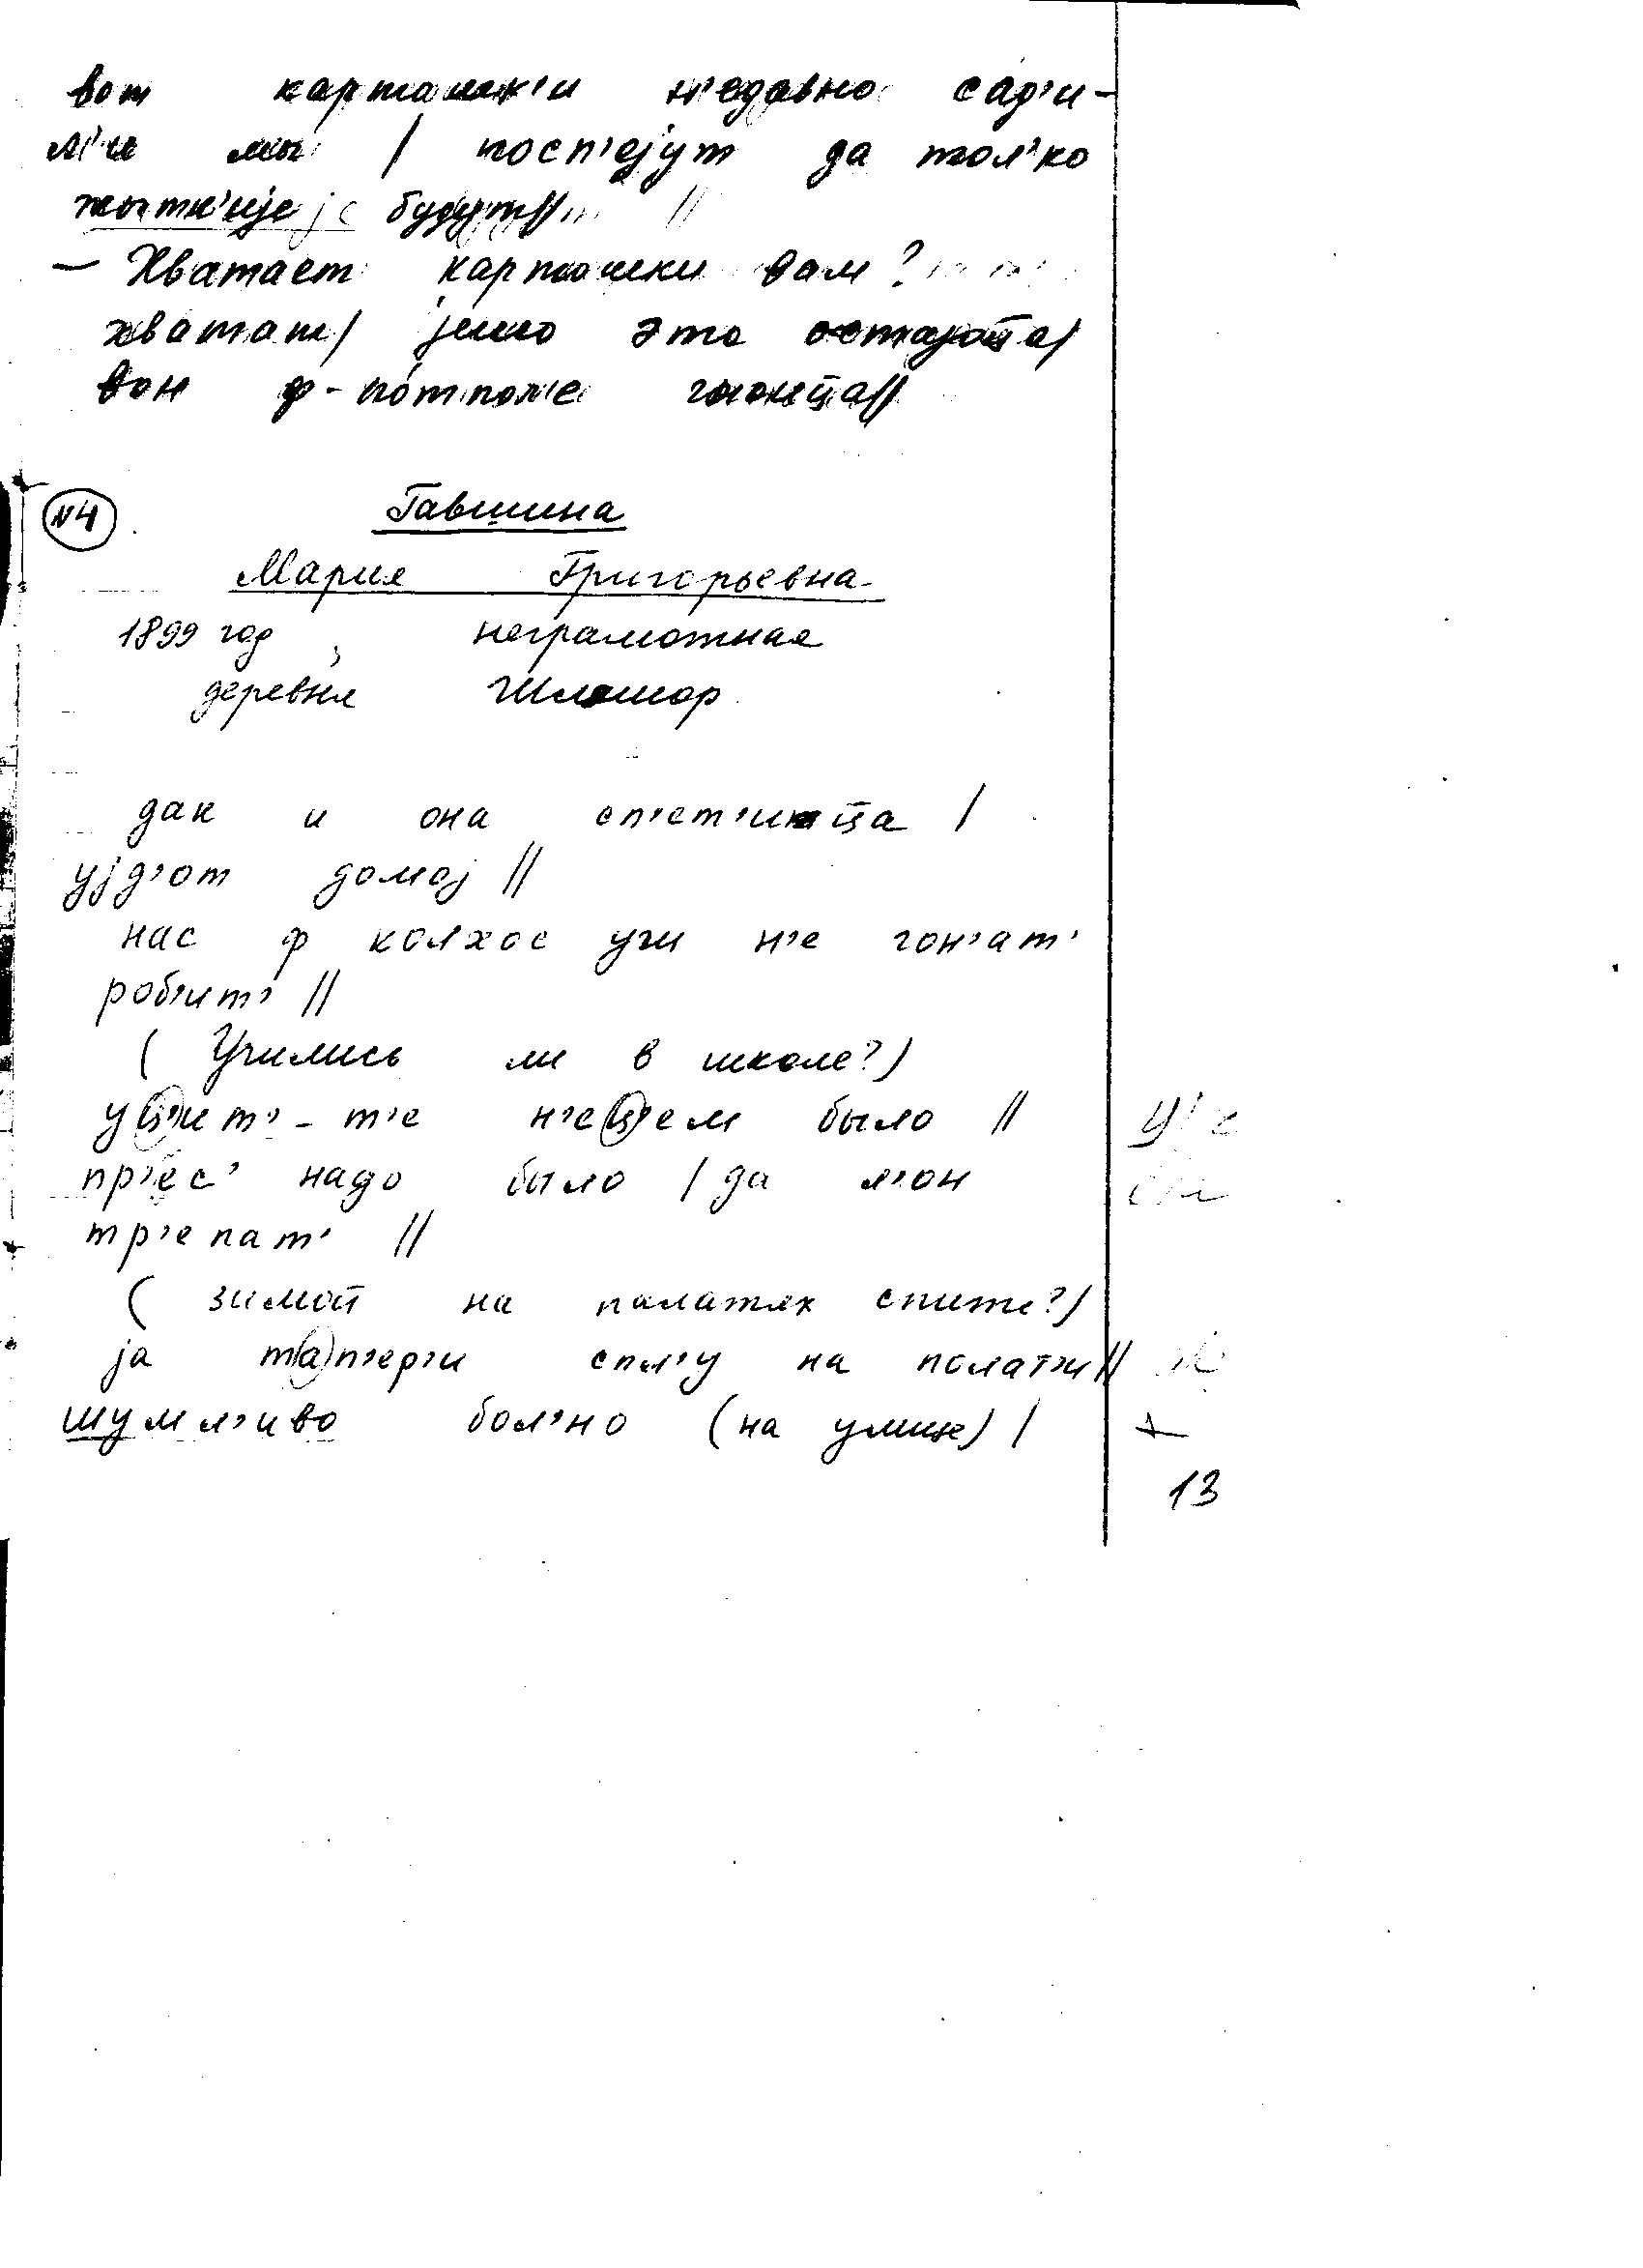 вот картошк'и н'едавно сад'и-
л'и мы / посп'еjут да тол'ко
будут //
— Хватает картошки вам?
хватат / jешо это остаjоца /
вон ф-потпол'е
№4 Гавшина
Мария Григорьевна
1899 год, неграмотная
деревня
дак и она
уjд'от домоj //
нас ф колхос уш н'е гон'ат'
роб'ит' //
( Учились ли в школе?)
уц'ит'-т'е н'ец'ем было //
пр'ес' надо было / да л'он
тр'епат' //
( зимой на палатях спите?)
jа т(а)п'ер'и спл'у на полат'и //
шумл'иво бол'но (на улице) /
13